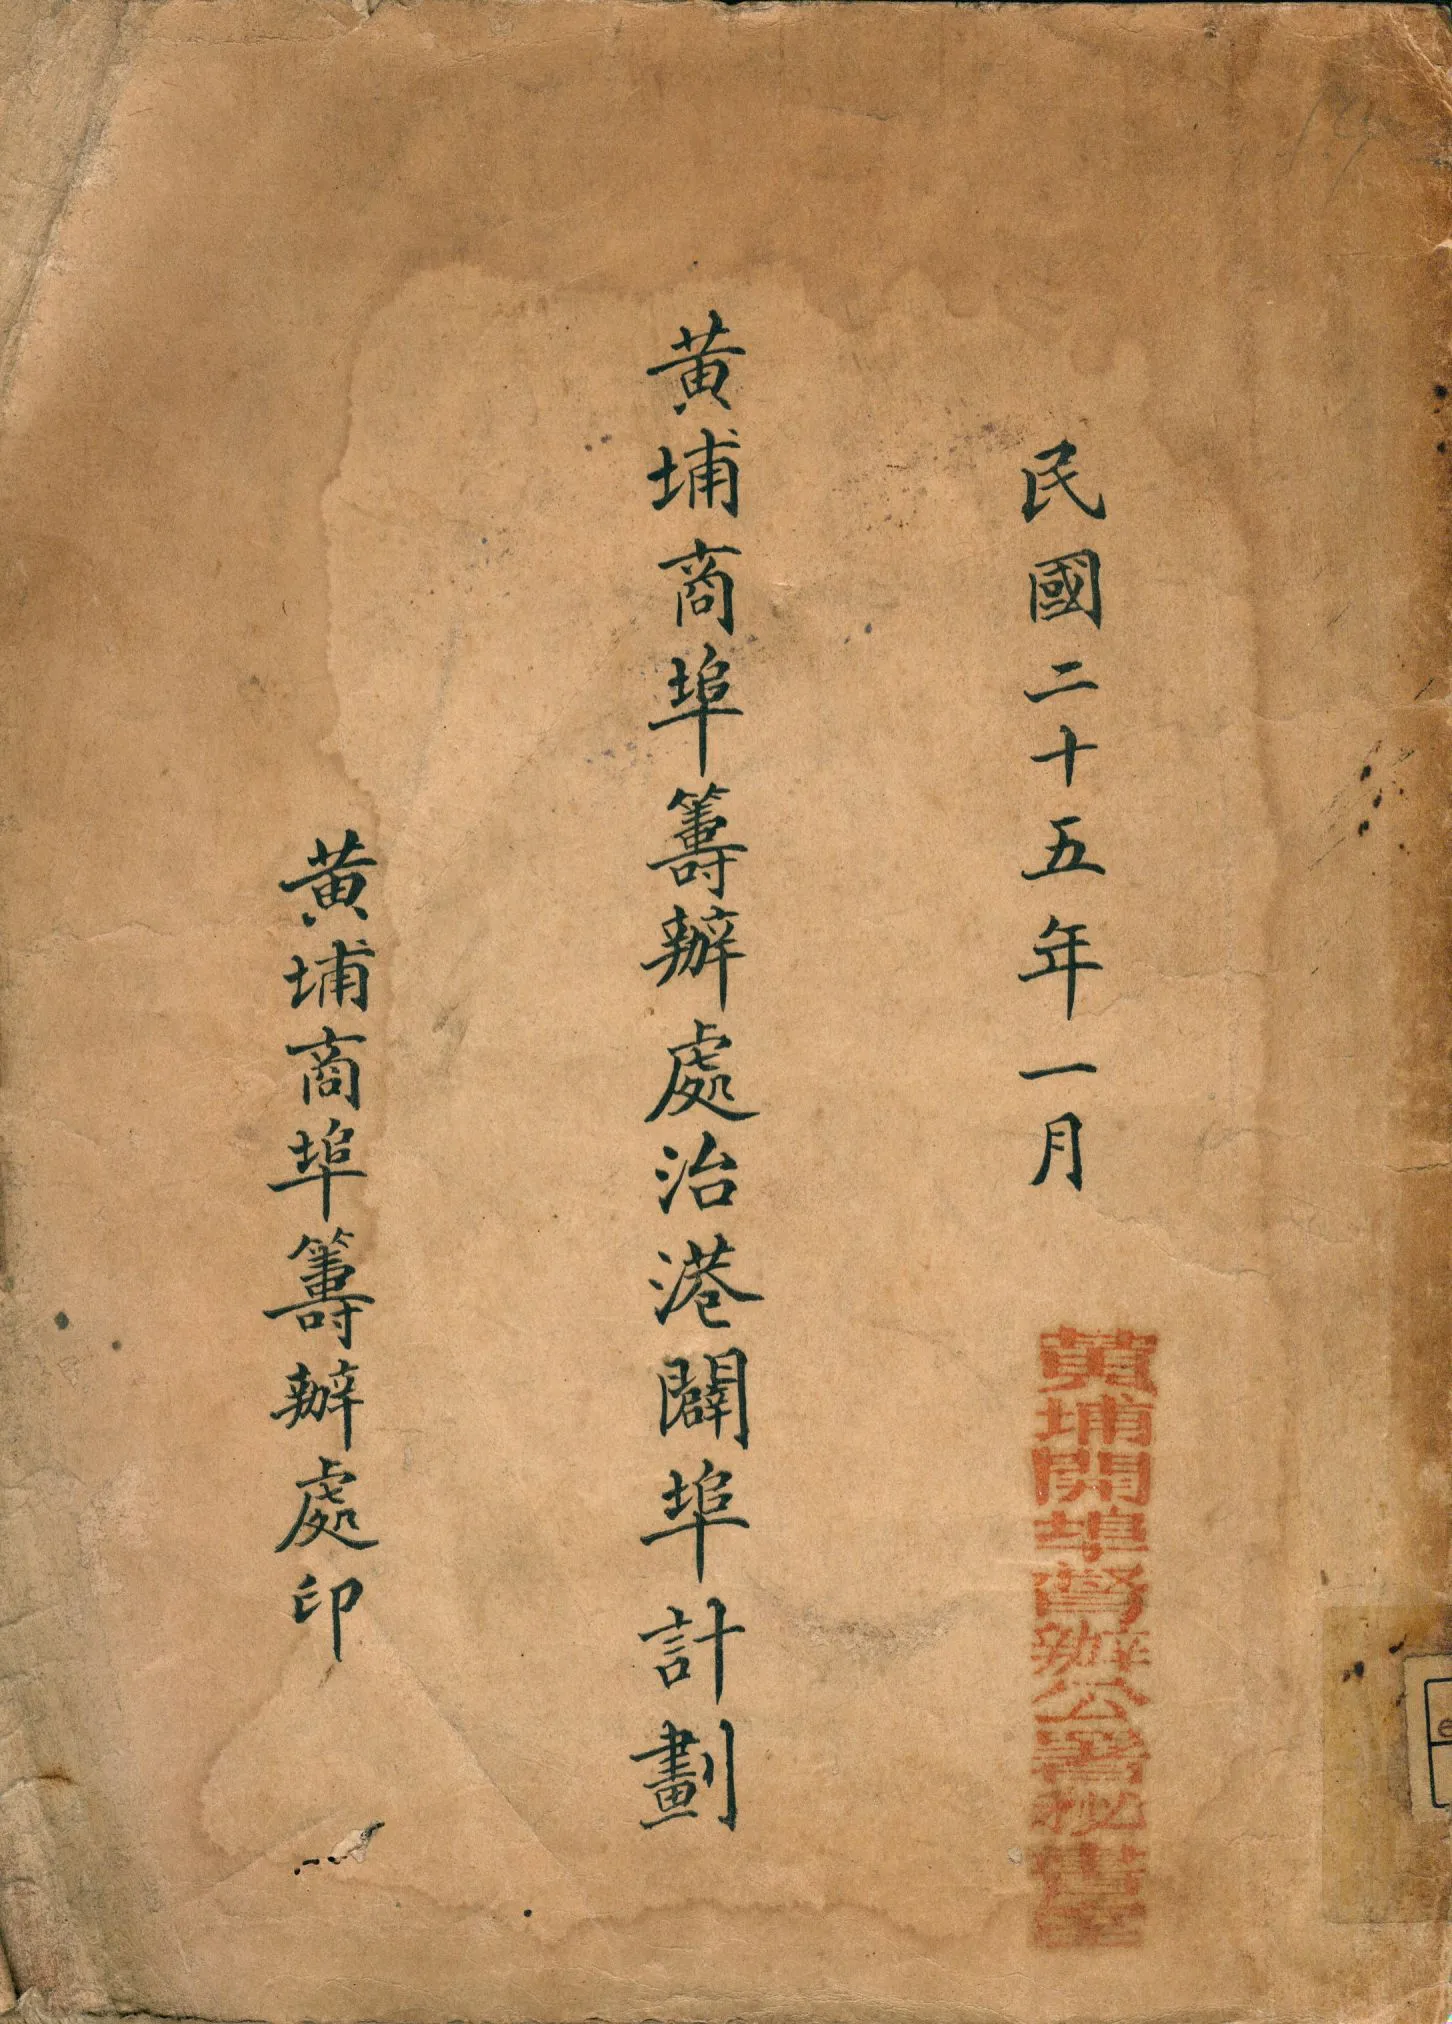 民國二十五年一月
黄埔開埠督辦公署秘書室
黄埔商埠籌辦處治港闢埠計劃
黄埔商埠籌辦處印